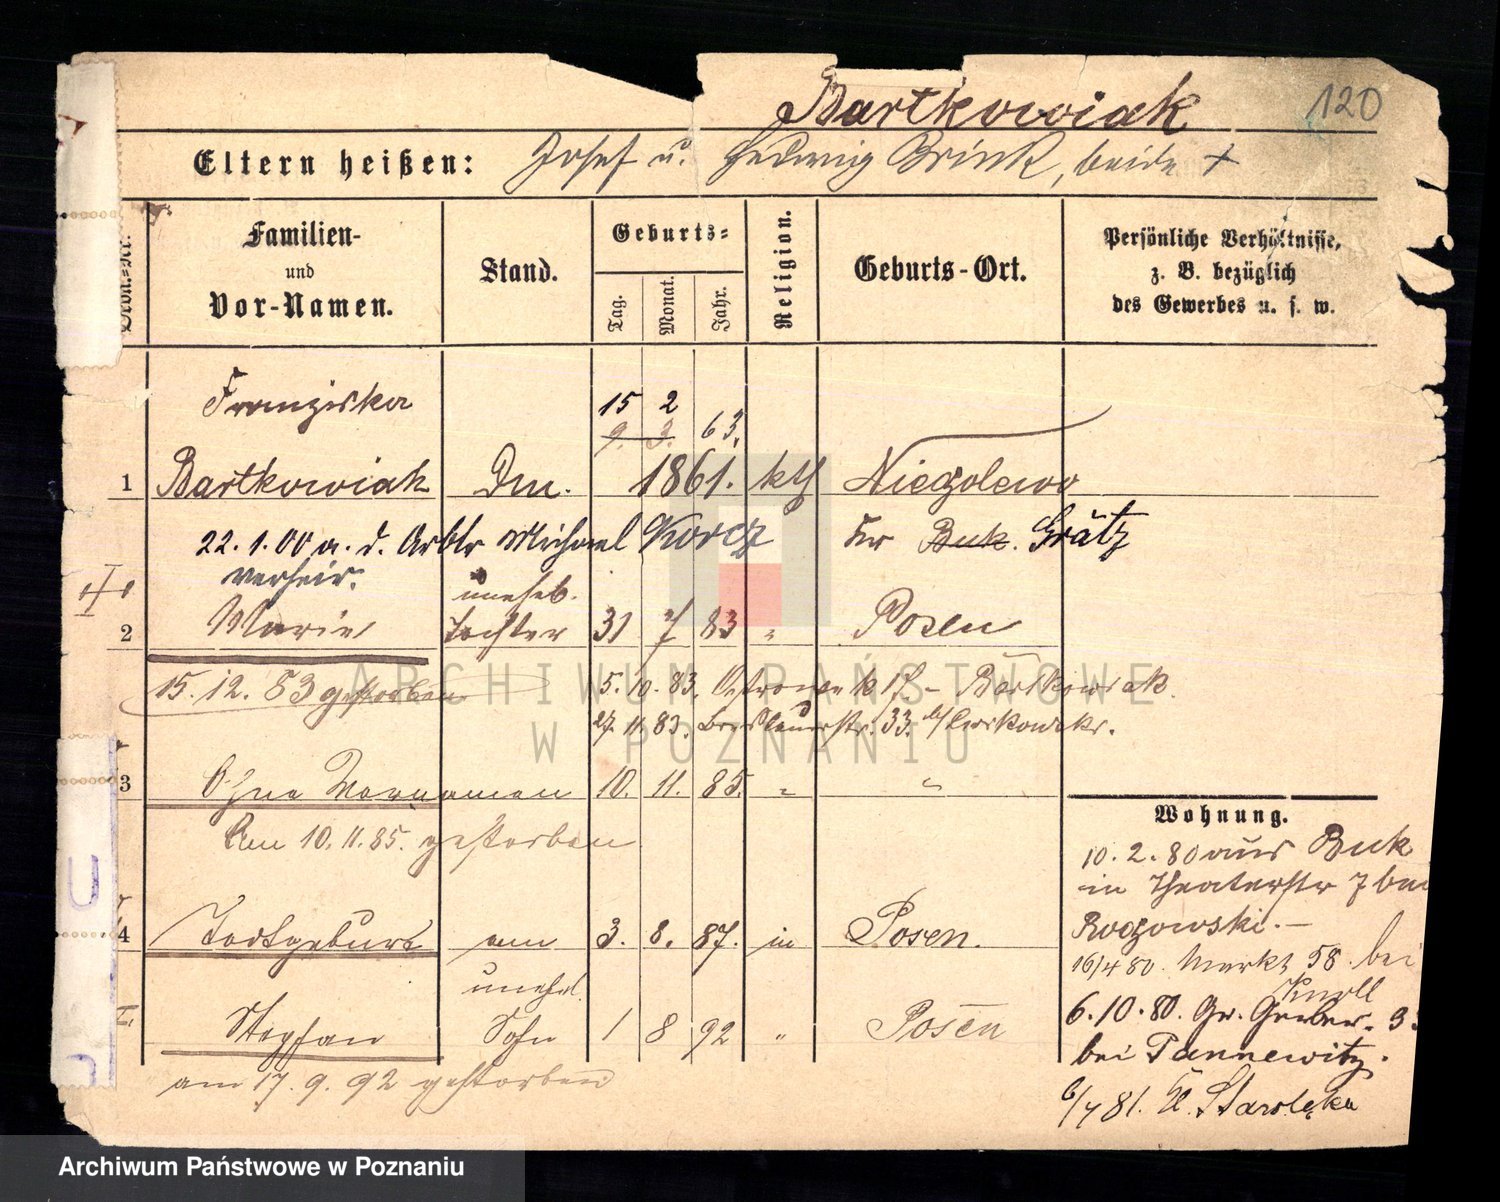 Bartkowiak
120
Eltern heißen: Josef u. Hedwig Brink, beide +
Familien-
und
Vor-Namen.
Stand.
Geburts-
Tag.
Monat.
Jahr.
Religion.
Geburts-Ort.
Persönliche Verhältnisse,
z. B. bezüglich
des Gewerbes u. s. w.
Franziska
15 2
9. 3. 63.
1 Bartkowiak 1861. kth Niegolewo
22.1.00 a. d. Arbtr Michael Korcz Kr Buk. Grätz
verheir.
unehel.
2 Marie Tochter 31 7 83 " Posen
15.12.83 gestorben 5.10.83. Ostrowek 17 - Bartkowiak.
27.11.83. Breslauerstr. 33. b/
3 Ohne Vornamen 10. 11. 85. " "
Am 10.11.85. gestorben
4 Todtgeburt am 3. 8. 87. in Posen.
unehel.
Stephan Sohn 1 8 92 " Posen
am 17.9.92 gestorben
Wohnung.
10.2.80 aus Buk
in Theaterstr 7 bei
Rogowski. -
16/4 80. Markt 58. bei
Knoll
6.10.80. Gr. Gerber. 3
bei Pannewitz.
6/7 81. U. Starolęka
ARCHIWUM PAŃSTWOWE
W POZNANIU
Archiwum Państwowe w Poznaniu